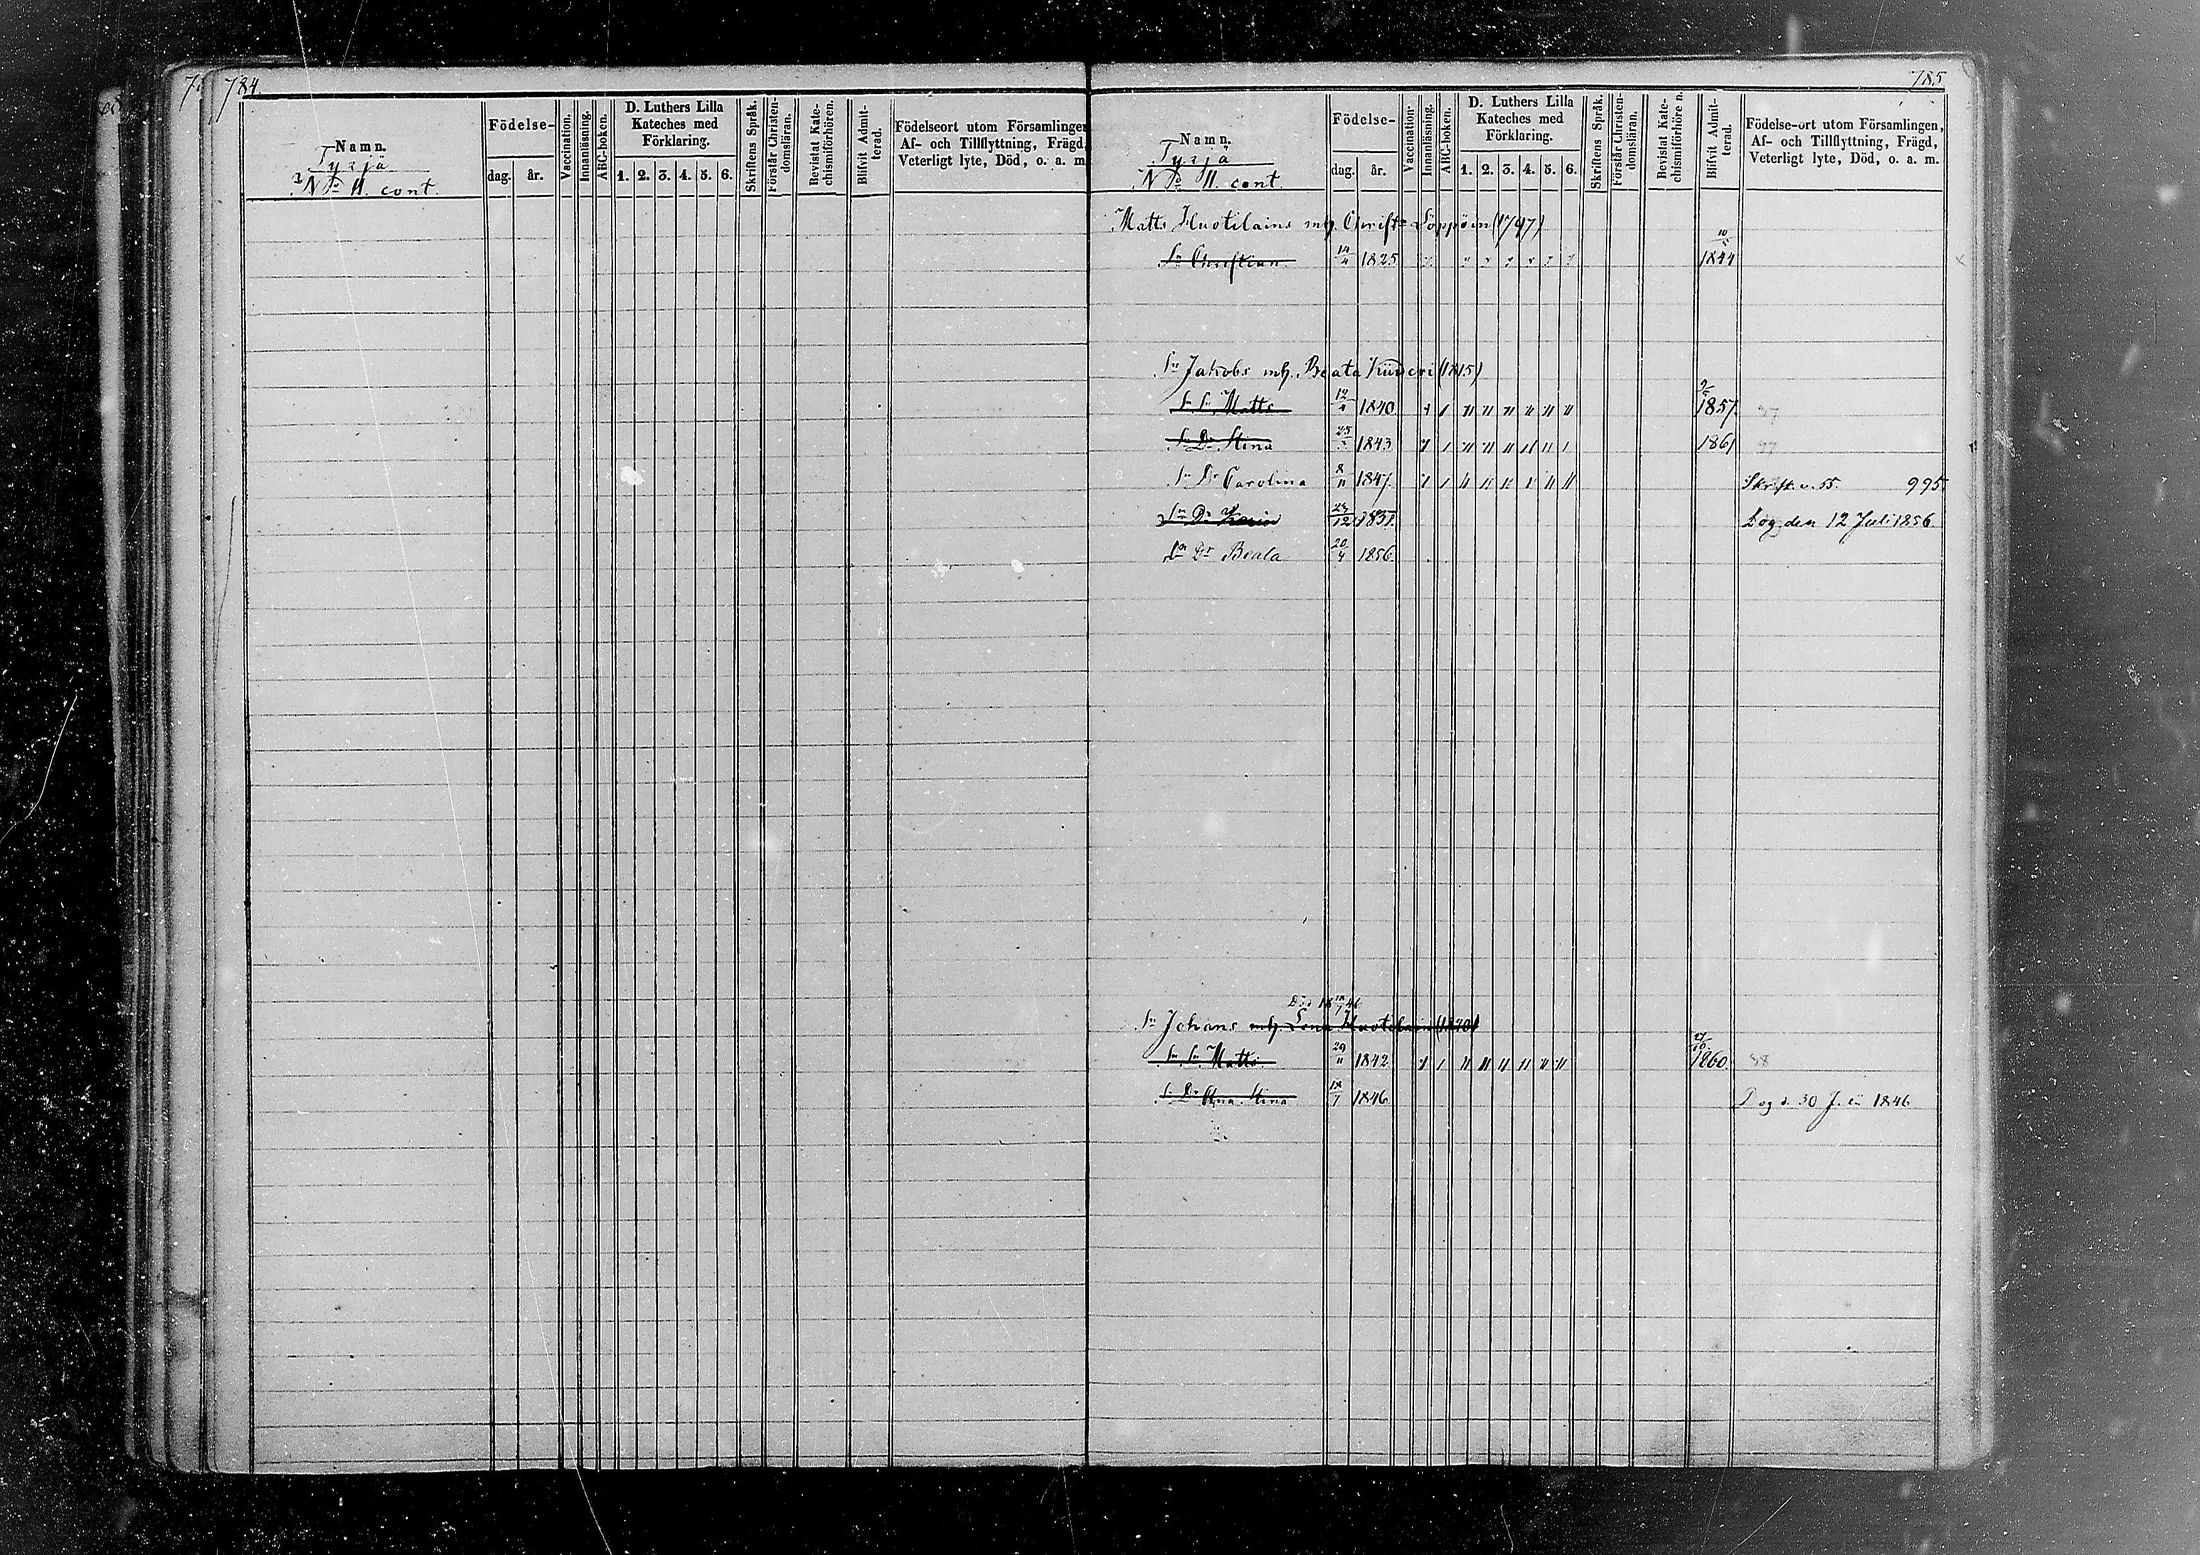 784.
Namn.
Tyrjä
N:o 11. cont.
Födelse-
dag. år.
Vaccination.
Innanläsning.
ABC-boken.
D. Luthers Lilla
Kateches med
Förklaring.
1. 2. 3. 4. 5. 6.
Skriftens Språk.
Förstår Christen-
domsläran.
Bevistat Kate-
chismiförhören.
Blifvit Admit-
terad.
Födelseort utom Församlingen
Af- och Tillflyttning, Frägd,
Veterligt lyte, Död, o. a. m.
785
Namn.
Tyrjä
N:o 11. cont.
Födelse-
dag. år.
Vaccination.
Innanläsning.
ABC-boken.
D. Luthers Lilla
Kateches med
Förklaring.
1. 2. 3. 4. 5. 6.
Skriftens Språk.
Förstår Christen-
domsläran.
Bevistat Kate-
chismiförhören.
Blifvit Admit-
terad.
Födelse-ort utom Församlingen,
Af- och Tillflyttning, Frägd,
Veterligt lyte, Död, o. a. m.
Matts Huotilains mh. Christ: Löppöin (1797)
Sn Christian 14/4 1825 1844
Sn Jakobs mh. Beata (1815)
Sn Sn Matts 12/4 1840 1857
Sn Dr Stina 1843 1861
Sn Dr Carolina 8/11 1847. Skrift. v. 55. 995
Sn Dr 1851. Dog den 12 Juli 1856.
Sn Dr Beata 20/4 1856.
Sn Johans mh Lena Huotilain
Sn Sn Matts 29/11 1842 1860
Sn Dr Anna Stina 18/7 1846 Dog d. 30 1846